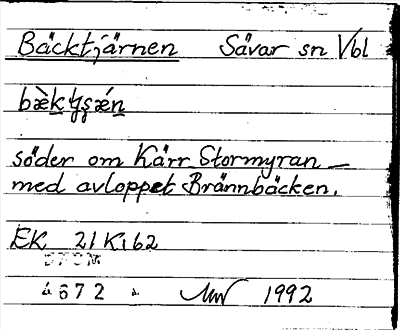 Bäcktjärnen Sävar sn Vbl
söder om Kärr Stormyran –
med avloppet Brännbäcken.
EK 21 K 1 62
672 1992